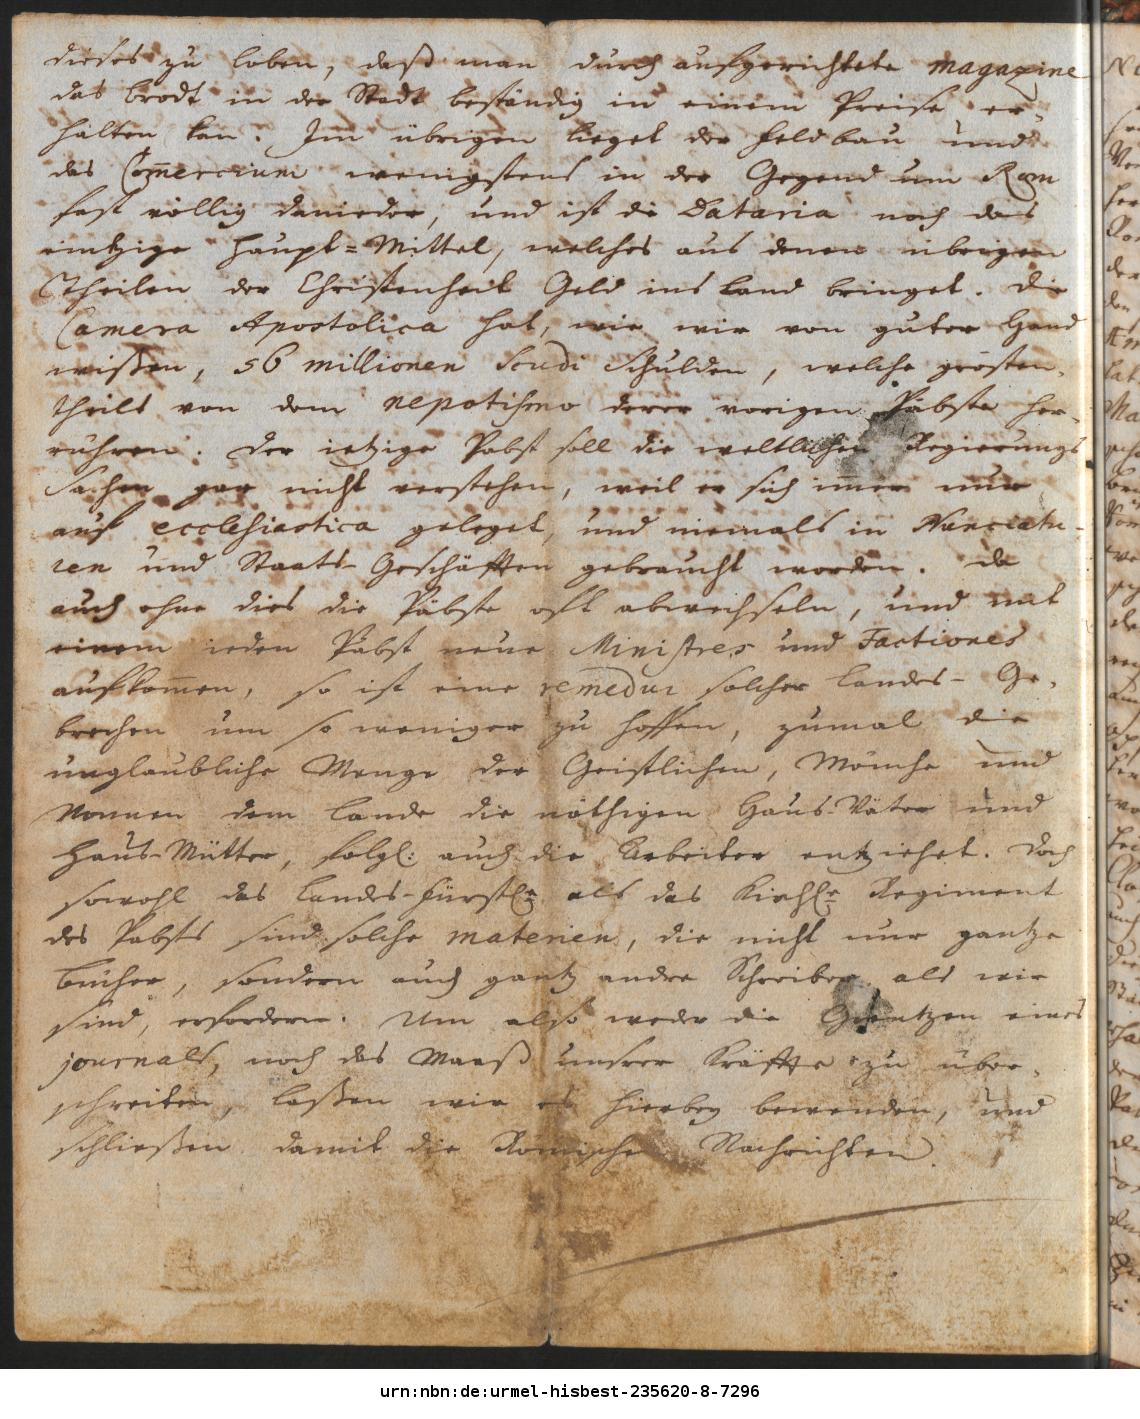 dieses zu loben, daß man durch aufgerichtete magazine
das brodt in der Stadt beständig in einem Preise er-
halten kan. Im übrigen lieget der Feldbau und
das Com̄ercium wenigstens in der Gegend um Rom
fast völlig danieder, und ist die Dataria noch das
eintzige Haupt=Mittel, welches aus denen übrigen
Theilen der Christenheit Geld ins Land bringet. Die
Camera Apostolica hat, wie wir von guter Hand
wißen, 56 millionen Scudi Schulden, welche grösten-
theils von dem nepotismo derer vorigen Päbste her-
rühren. Der ietzige Pabst soll die weltlichen Regierungs
Sachen gar nicht verstehen, weil er sich im̄er nur
auf ecclesiastica geleget, und niemals in Nunciatu-
ren und Staats-Geschäfften gebraucht worden. Da
auch ohne dies die Päbste oft abwechseln, und mit
einem ieden Pabst neue Ministres und Factiones
aufkom̄en, so ist eine remedur solcher Landes-Ge-
brechen um so weniger zu hoffen, zumal die
unglaubliche Menge der Geistlichen, Mönche und
Nonnen dem Lande die nöthigen Haus-Väter und
Haus-Mütter, folgl: auch die Arbeiter entziehet. Doch
sowohl das Landes-Fürstl. als das Kirchl. Regiment
des Pabsts sind solche materien, die nicht nur gantze
bücher, sondern auch gantz andre Schreiber als wir
sind, erfordern. Um also weder die Grentzen eines
journals, noch das Maaß unsrer Kräffte zu über-
schreiten, laßen wir es hierbey bewenden, und
schließen damit die Römische Nachrichten.
urn:nbn:de:urmel-hisbest-235620-8-7296